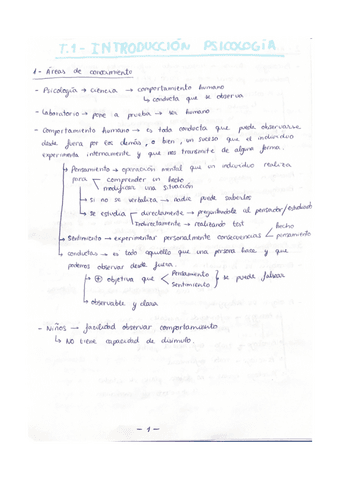 T.1 - INTRODUCCIÓN PSICOLOGÍA
1 - Áreas de conocimiento
- Psicología → ciencia → comportamiento humano
↳ conducta que se observa
- Laboratorio → pone a prueba → ser humano
- Comportamiento humano → es toda conducta que puede observarse
desde fuera por los demás, o bien, un suceso que el individuo
experimenta internamente y que nos transmite de alguna forma.
→ Pensamiento → operación mental que un individuo realiza
para comprender un hecho
modificar una situación
→ si no se verbaliza → nadie puede saberlo
→ se estudia directamente → preguntándole al pensador/estudiado
Indirectamente → realizando test
→ Sentimiento → experimentar personalmente consecuencias hecho
pensamiento
→ conductas → es todo aquello que una persona hace y que
podemos observar desde fuera.
→ ⊕ objetiva que Pensamiento
Sentimiento } se puede falsear
→ observable y clara
- Niños → facilidad observar comportamiento
↳ NO tiene capacidad de disimulo.
- 1 -